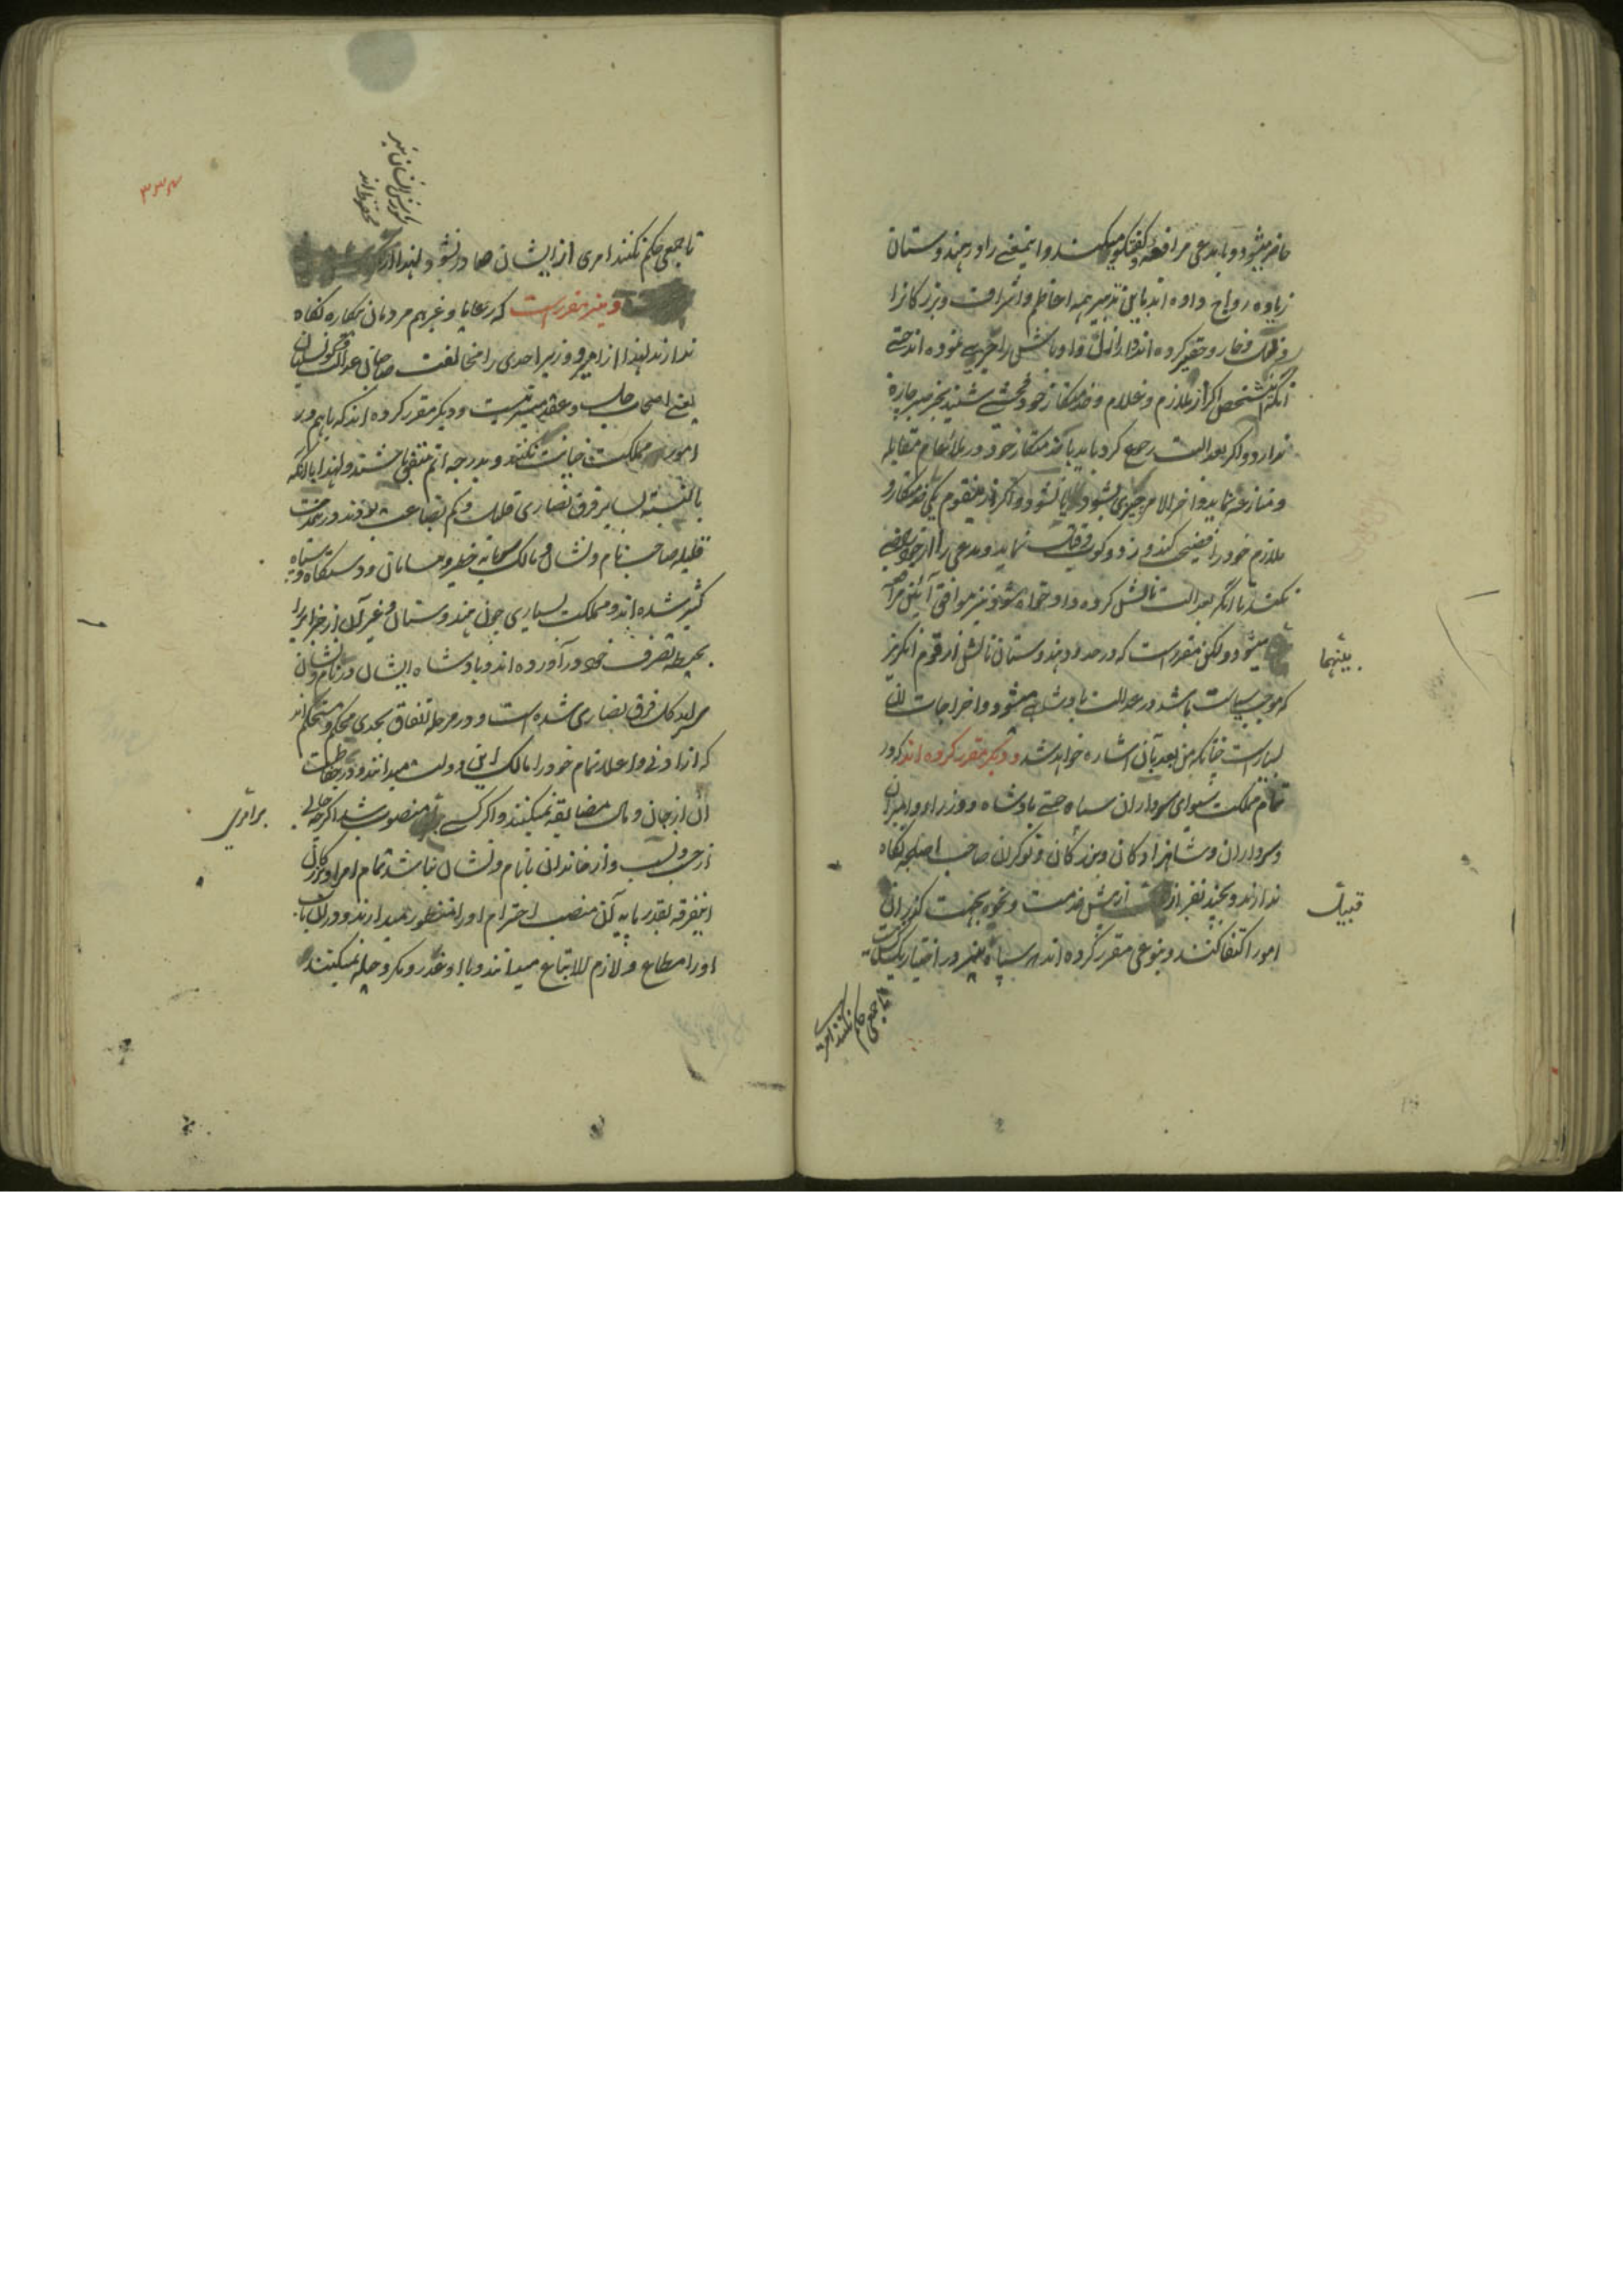 حاضر میشود و با مدعی مرافعه و گفتگو میکند و اینمعنی را در هندوستان
زیاده رواج داده اند باین تدبیر همه اعاظم و اشراف و بزرگانرا
و حقیر کرده اند و اراذل و اوباش را نموده اند حتی
آنکه شخص اگر از ملازم و غلام و خدمتکار خود فحشی شنید بجز صبر چاره
ندارد و اگر بعدالت رجوع کرد باید با خدمتکار خود در ملاءعام مقابله
و منازعه نماید و آخر الامر چیزی بشود یا نشود و اگر از اینقوم یکی خدمتکار و
ملازم خود را فضیحت کند و زد و کوب نماید و مدعی را
نکنند تا آنکه بعدالت نالش کرده داد خواه شود و نیز موافق آئین
میشود و لکن مقرر است که در حدود هندوستان نالش از قوم انگریز
بینهما
که موجب سیاست باشد در عدالت پادشاهی میشود و اخراجات آن
بسیار است چنانکه من بعد بآن اشاره خواهد شد و دیگر مقرر کرده اند که در
تمام مملکت سوای سرداران سپاه حتی پادشاه و وزراء و امیران
و سرداران و شاهزادگان و بزرگان و نوکران صاحب اسلحه نگاه
ندارند و بچند نفر از پیش خدمت و غیره بجهت گذران
قبیل
امور اکتفا کنند و بنوعی مقرر کرده اند که سپاه نیز در اختیار یک کس نیست
تا جمعی حکم نکنند امری
۳۳۴
محفوظ اند
تا جمعی حکم نکنند امری از ایشان صادر نشود لهذا از
و نیز مقرر است که رعایا و غیرهم مردمان بیکاره نگاه
ندارند لهذا از امیر و وزیر احدی را مخالفت صاحبان عدالت و کونسلیان
یعنی اصحاب حل و عقد میسر نیست و دیگر مقرر کرده اند که با هم در
امور مملکت خیانت نکنند و بدرجه اتم متفق باشند و لهذا با آنکه
بالنسبه بسایر فرق نصاری قلیل و کم بضاعت بودند در مدت
قلیله صاحب نام و نشان و مالک خطیر و سامان و دستگاه و سپاه
کثیر شده اند و مملکت بسیاری چون هندوستان و غیر آن از جزایر را
بحیطه تصرف خود در آورده اند و پادشاه ایشان در نام و نشان
سر آمد کل فرق نصاری شده است و در مرحله اتفاق بحدی محکم و مستحکم اند
که از ادنی و اعلا تمام خود را مالک این دولت میدانند و در حفاظت
آن از جان و مال مضایقه نمیکنند و اگر کسی بر امری منصوب شد اگر چه عالی
بر امری
از حسب و نسب و از خاندان با نام و نشان نباشد تمام امرا و بزرگان
اینفرقه بقدر پایه آن منصب احترام او را منظور میدارند و در آن باب
او را مطاع و لازم الاتباع میدانند و با او غدر و مکر و حیله نمیکنند